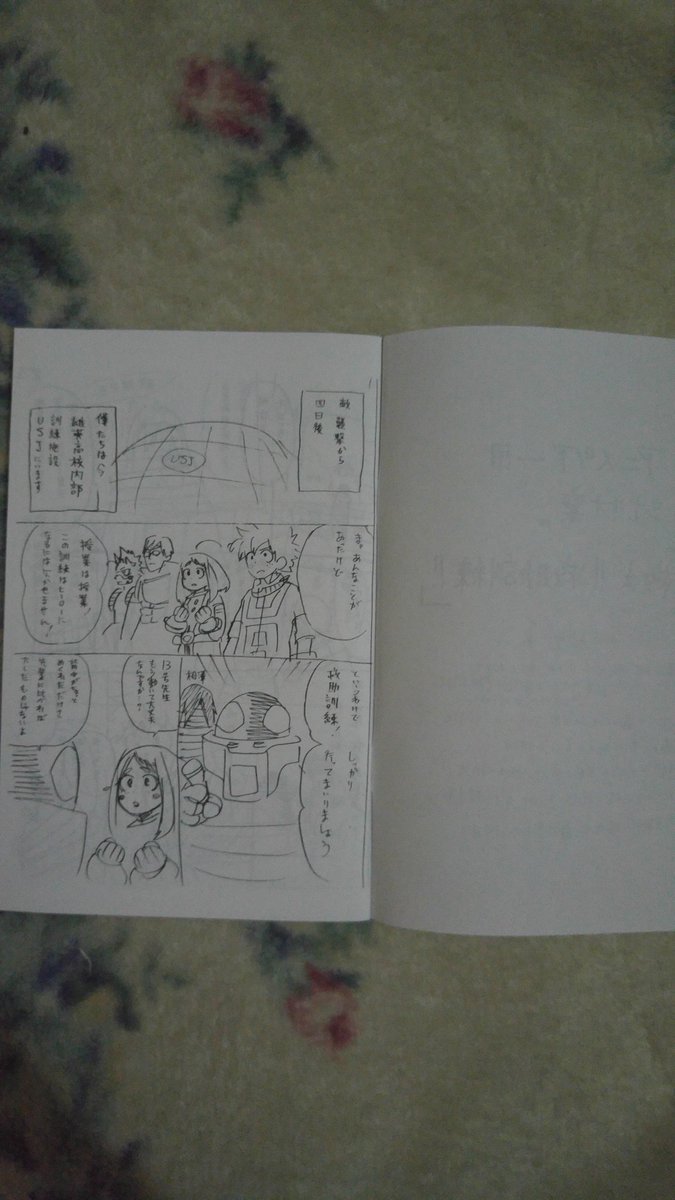 敵襲撃から
四日後
USJ
僕たちは今
雄英高校内部
訓練施設
USJにいます
ま。あんなことが
あったけど
授業は授業!
この訓練はヒーローに
なるには欠かせません!
というわけで
救助訓練!
しっかり
行ってまいりましょう
相澤
13号先生
もう動いて大丈夫
なんですか…?
背中がちょっと
めくれただけさ
先輩に比べれば
たしたものじゃないよ